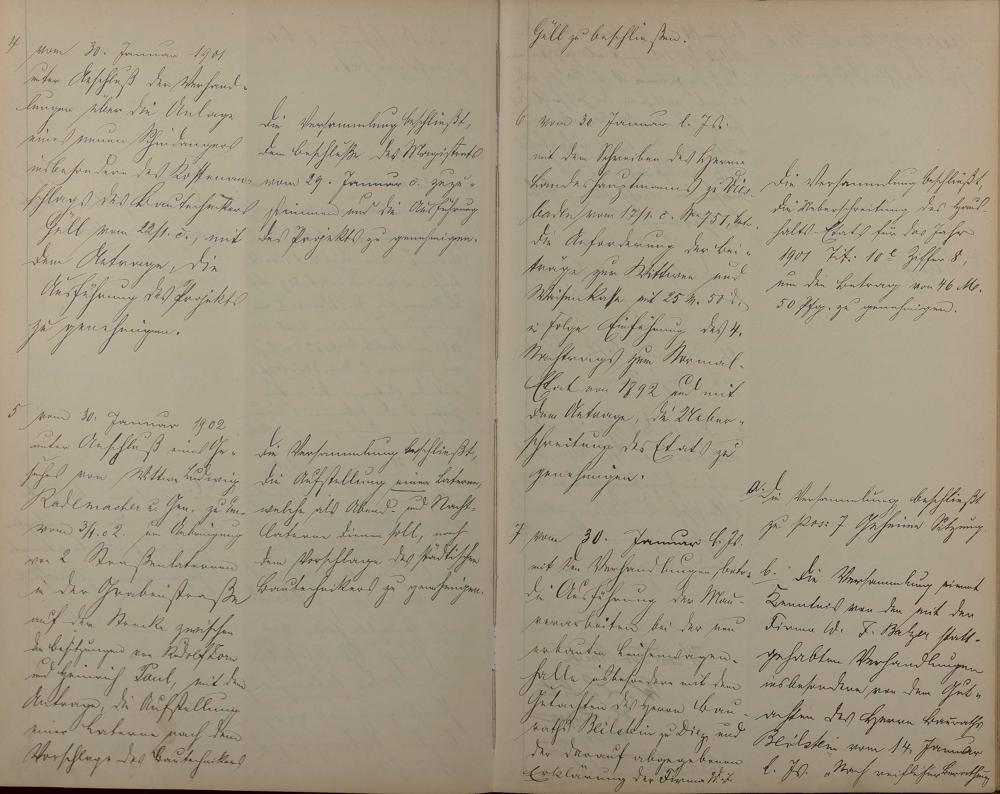 4
vom 30. Januar 1901
unter Anschluß der Verhand-
lungen über die Anlage
eines neuen Schindangers
insbesondere des Kostenan-
schlags des Bautechnikers
Güll vom 22/1. c., mit
dem Antrage, die
Ausführung des Projekts
zu genehmigen.
Die Versammlung beschließt,
dem Beschlusse des Magistrats
vom 29. Januar c. zuzu-
stimmen und die Ausführung
des Projekts zu genehmigen.
5
vom 30. Januar 1902
unter Anschluß eines Ge-
suches von Wittwe Ludwig
Rademacher u. Gen. zu
vom 3/1. 02. um Anbringung
von 2 Straßenlaternen
in der Grabenstraße
auf der Strecke zwischen
den Besitzungen von Rudolf
und Heinrich Faul, mit dem
Antrage, die Aufstellung
einer Laterne nach dem
Vorschlage des Bautechnikers
Die Versammlung beschließt,
die Aufstellung einer Laterne,
welche als Abend- und Nacht-
laterne dienen soll, nach
dem Vorschlage des städtischen
Bautechnikers zu genehmigen.
Güll zu beschließen.
6
vom 30 Januar l. Js.
mit dem Schreiben des Herrn
Landeshauptmanns zu Wies-
baden vom 17/1. c. No 751, betr.
die Anforderung der Bei-
träge zur Wittwen und
Waisenkasse mit 25 M. 50 d.,
in Folge Einführung des 4.
Nachtrags zum Normal-
Etat von 1892 und mit
dem Antrage, die Ueber-
schreitung des Etats zu
genehmigen.
Die Versammlung beschließt,
die Ueberschreitung des Haus-
halts-Etats für das Jahr
1901 Tit. 10 Ziffer 8,
um den Betrag von 46 M.
50 Pfg. zu genehmigen.
7
vom 30. Januar l. Js.
mit den Verhandlungen, betr.
die Ausführung der Mau-
rerarbeiten bei der neu
erbauten Leichenwagen-
halle insbesondere mit dem
Gutachten des Herrn Bau-
raths Beilstein zu Diez und
der darauf abgegebenen
Erklärung der Firma W. F.
a. Die Versammlung beschließt
zu Pos: 7 Geheime Sitzung
b. Die Versammlung nimmt
Kenntnis von den mit der
Firma W. F. Balzer statt-
gehabten Verhandlungen
insbesondere von dem Gut-
achten des Herrn Bauraths
Beilstein vom 14. Januar
l. Js. "Nach reiflicher Berathung